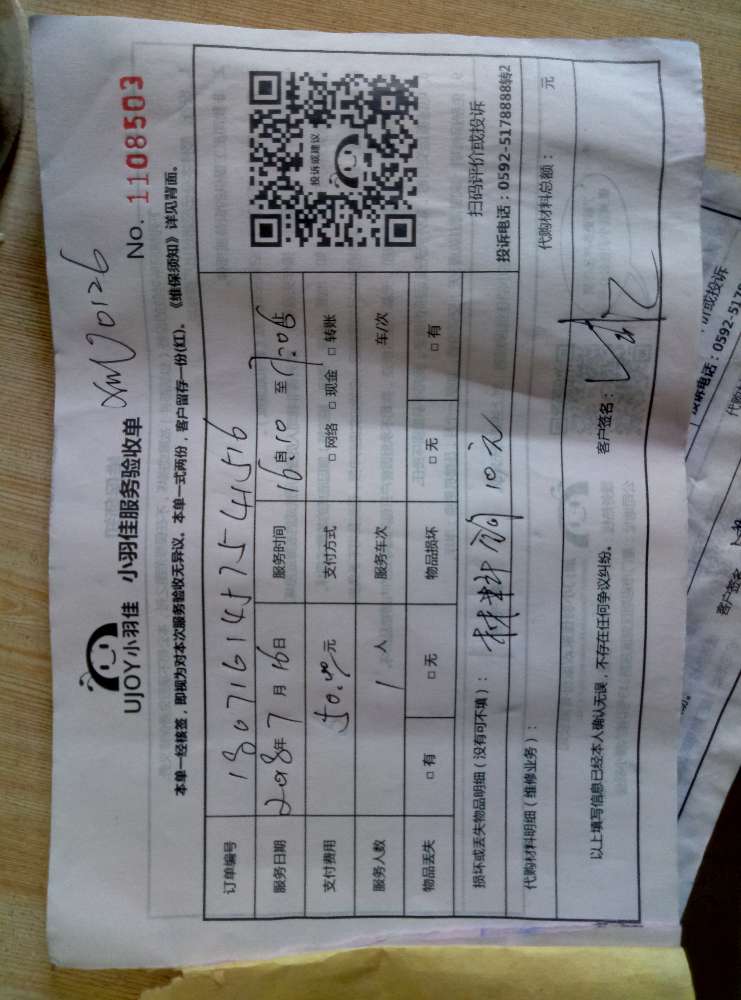 UJOY小羽佳 小羽佳服务验收单 XmV0126
No. 1108503
本单一经核签,即视为对本次服务验收无异议。本单一式两份,客户留存一份(红)。《维保须知》详见背面。
订单编号 1807161457541516
服务日期 2018年7月16日 服务时间 16:10 自 至 17:06止
支付费用 50.00元 支付方式 □ 网络 □ 现金 □ 转账
服务人数 1 人 服务车次 车/次
物品丢失 □ 有 □ 无 物品损坏 □ 无 □ 有
投诉或建议
扫码评价或投诉
投诉电话:0592-5178888转2
损坏或丢失物品明细(没有可不填): 材料约10元
代购材料明细(维修业务): 代购材料总额: 元
以上填写信息已经本人确认无误,不存在任何争议纠纷。 客户签名:
或投诉
投诉电话:0592-517
代购材
客户签名